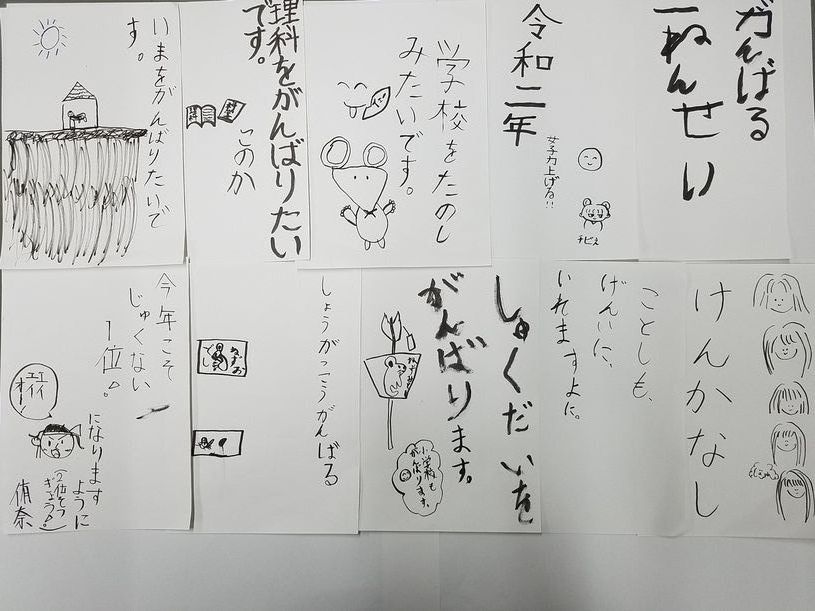 ガんばる
一ねんせい
令和二年
女子力上げる!!
チビえ
学校をたのし
みたいです。
理科をがんばりたい
です。
このか
いまをがんばりたいで
す。
けんかなし
ことしも、
げんいに、
いれますよに。
しゅくだいを
がんばります。
小学校も
がんばります。
しょうがっこうがんばる
今年こそ
じゅくない
1位!
になります
ように
(2位そつ
ぎょう!)
侑奈
エイ
エイ
オー